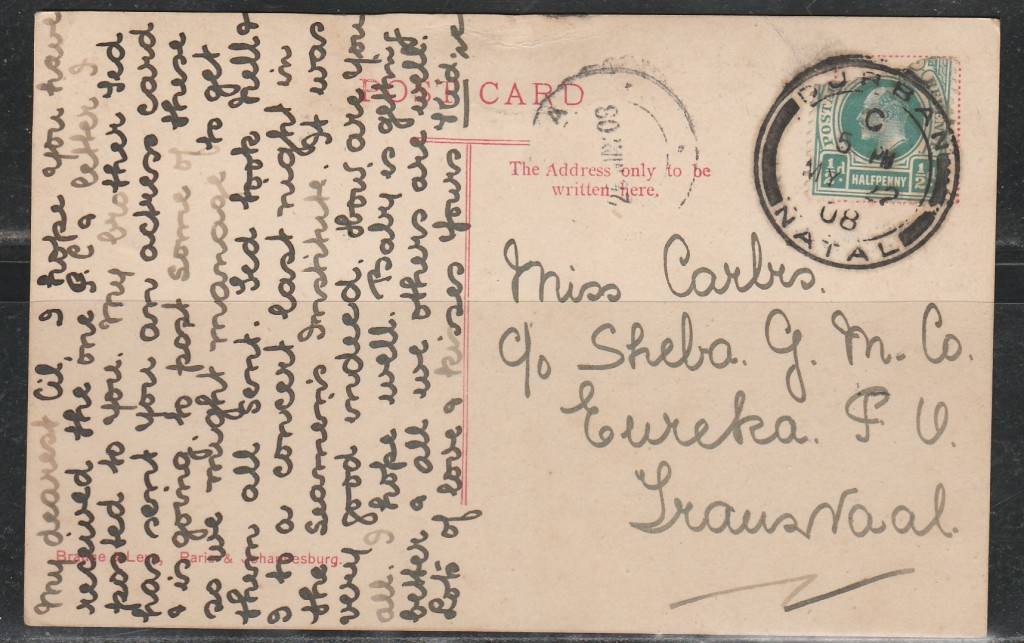 My dearest Cil, I hope you have
received the one P.C. & letter I
posted to you. My brother Ted
has sent you an actress card
& is going to post some of these
so we might manage to get
them all sent. Ted took Nell &
I to a concert last night in
the Seamen's Institute. It was
very good indeed. How are you
all. I hope well. Baby is getting
better & all we others are well.
Lots of love & kisses yours
POST CARD
The Address only to be
written here.
Miss Carbrs.
c/o Sheba. G. M. Co.
Eureka.
TransVaal.
Paris & Johannesburg.
DURBAN
C
5 PM
MY 22
08
NATAL
POSTA
½d HALFPENNY ½
08